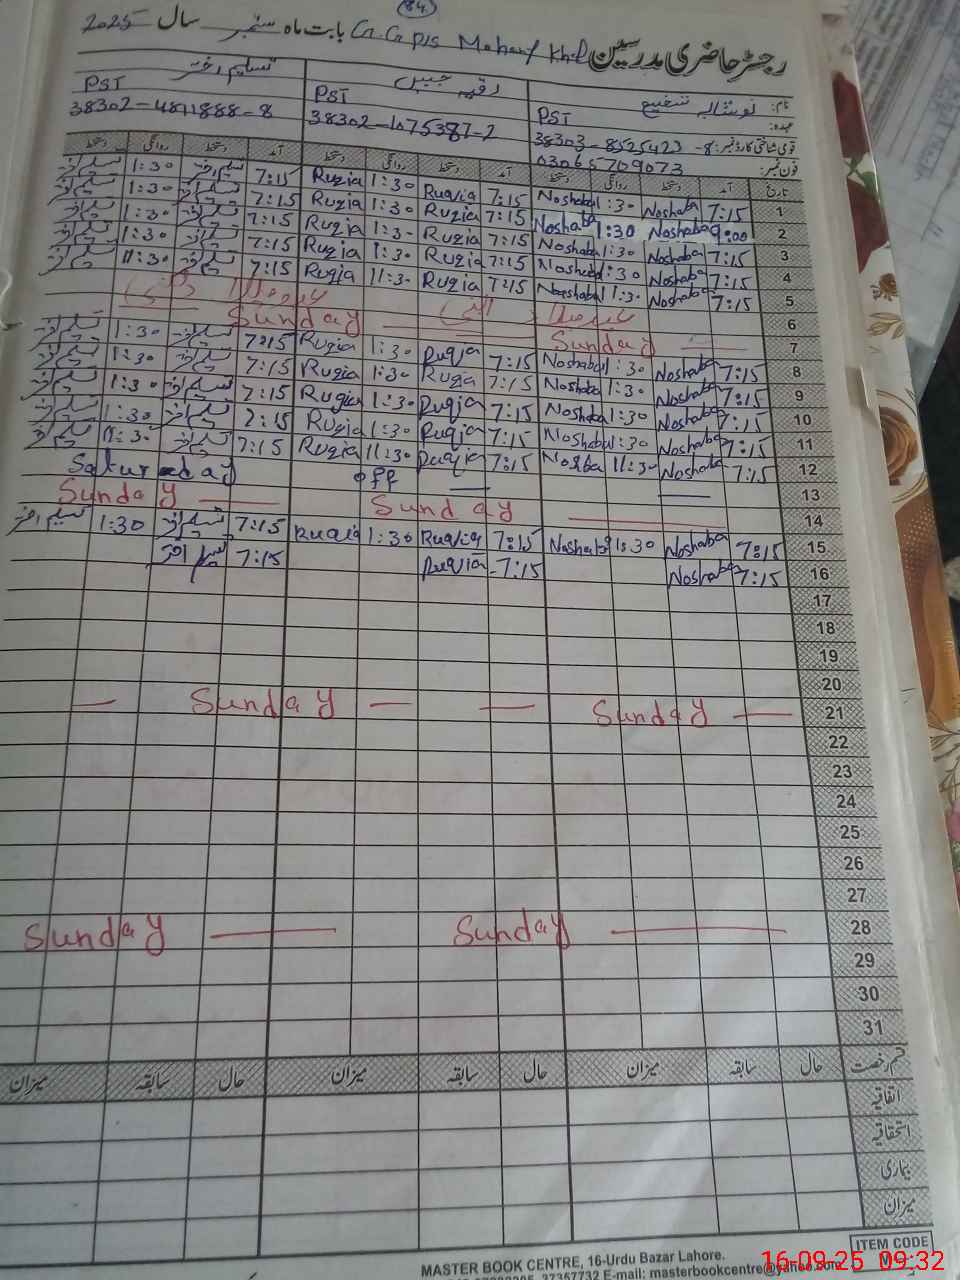 84
رجسٹر حاضری مدرسین G.G.P/S Mohanf Khel بابت ماہ ستمبر سال 2025
نام: نوشابہ شفیع رقیہ جبیں تسلیم اختر
عہدہ: PST PST PST
قومی شناختی کارڈ نمبر: 38303-8525423-8 38302-1075387-2 38302-4841888-8
فون نمبر: 03065709073
تاریخ آمد دستخط روانگی دستخط آمد دستخط روانگی دستخط آمد دستخط روانگی دستخط
1 7:15 Noshaba 1:30 Noshaba 7:15 Ruqia 1:30 Ruqia 7:15 تسلیم اختر 1:30 تسلیم اختر
2 9:00 Noshaba 1:30 Noshaba 7:15 Ruqia 1:30 Ruqia 7:15 تسلیم اختر 1:30 تسلیم اختر
3 7:15 Noshaba 1:30 Noshaba 7:15 Ruqia 1:30 Ruqia 7:15 تسلیم اختر 1:30 تسلیم اختر
4 7:15 Noshaba 1:30 Noshaba 7:15 Ruqia 1:30 Ruqia 7:15 تسلیم اختر 1:30 تسلیم اختر
5 7:15 Noshaba 11:30 Noshaba 7:15 Ruqia 11:30 Ruqia 7:15 تسلیم اختر 11:30 تسلیم اختر
6 عید میلاد النبی عید میلاد النبی
7 Sunday Sunday
8 7:15 Noshaba 1:30 Noshaba 7:15 Ruqia 1:30 Ruqia 7:15 تسلیم اختر 1:30 تسلیم اختر
9 7:15 Noshaba 1:30 Noshaba 7:15 Ruqia 1:30 Ruqia 7:15 تسلیم اختر 1:30 تسلیم اختر
10 7:15 Noshaba 1:30 Noshaba 7:15 Ruqia 1:30 Ruqia 7:15 تسلیم اختر 1:30 تسلیم اختر
11 7:15 Noshaba 1:30 Noshaba 7:15 Ruqia 1:30 Ruqia 7:15 تسلیم اختر 1:30 تسلیم اختر
12 7:15 Noshaba 11:30 Noshba 7:15 Ruqia 11:30 Ruqia 7:15 تسلیم اختر 11:30 تسلیم اختر
13 Saturday off
14 Sunday Sunday
15 7:15 Noshaba 1:30 Noshaba 7:15 Ruqia 1:30 Ruqia 7:15 تسلیم اختر 1:30 تسلیم اختر
16 7:15 Noshaba 7:15 Ruqia 7:15 تسلیم اختر
17
18
19
20
21 Sunday Sunday
22
23
24
25
26
27
28 Sunday Sunday
29
30
31
قسم رخصت حال سابقہ میزان حال سابقہ میزان حال سابقہ میزان
اتفاقیہ
استحقاقیہ
بیماری
میزان
ITEM CODE
MASTER BOOK CENTRE, 16-Urdu Bazar Lahore.
37357732 E-mail: masterbookcentre@yahoo.com
16-09-25 09:32